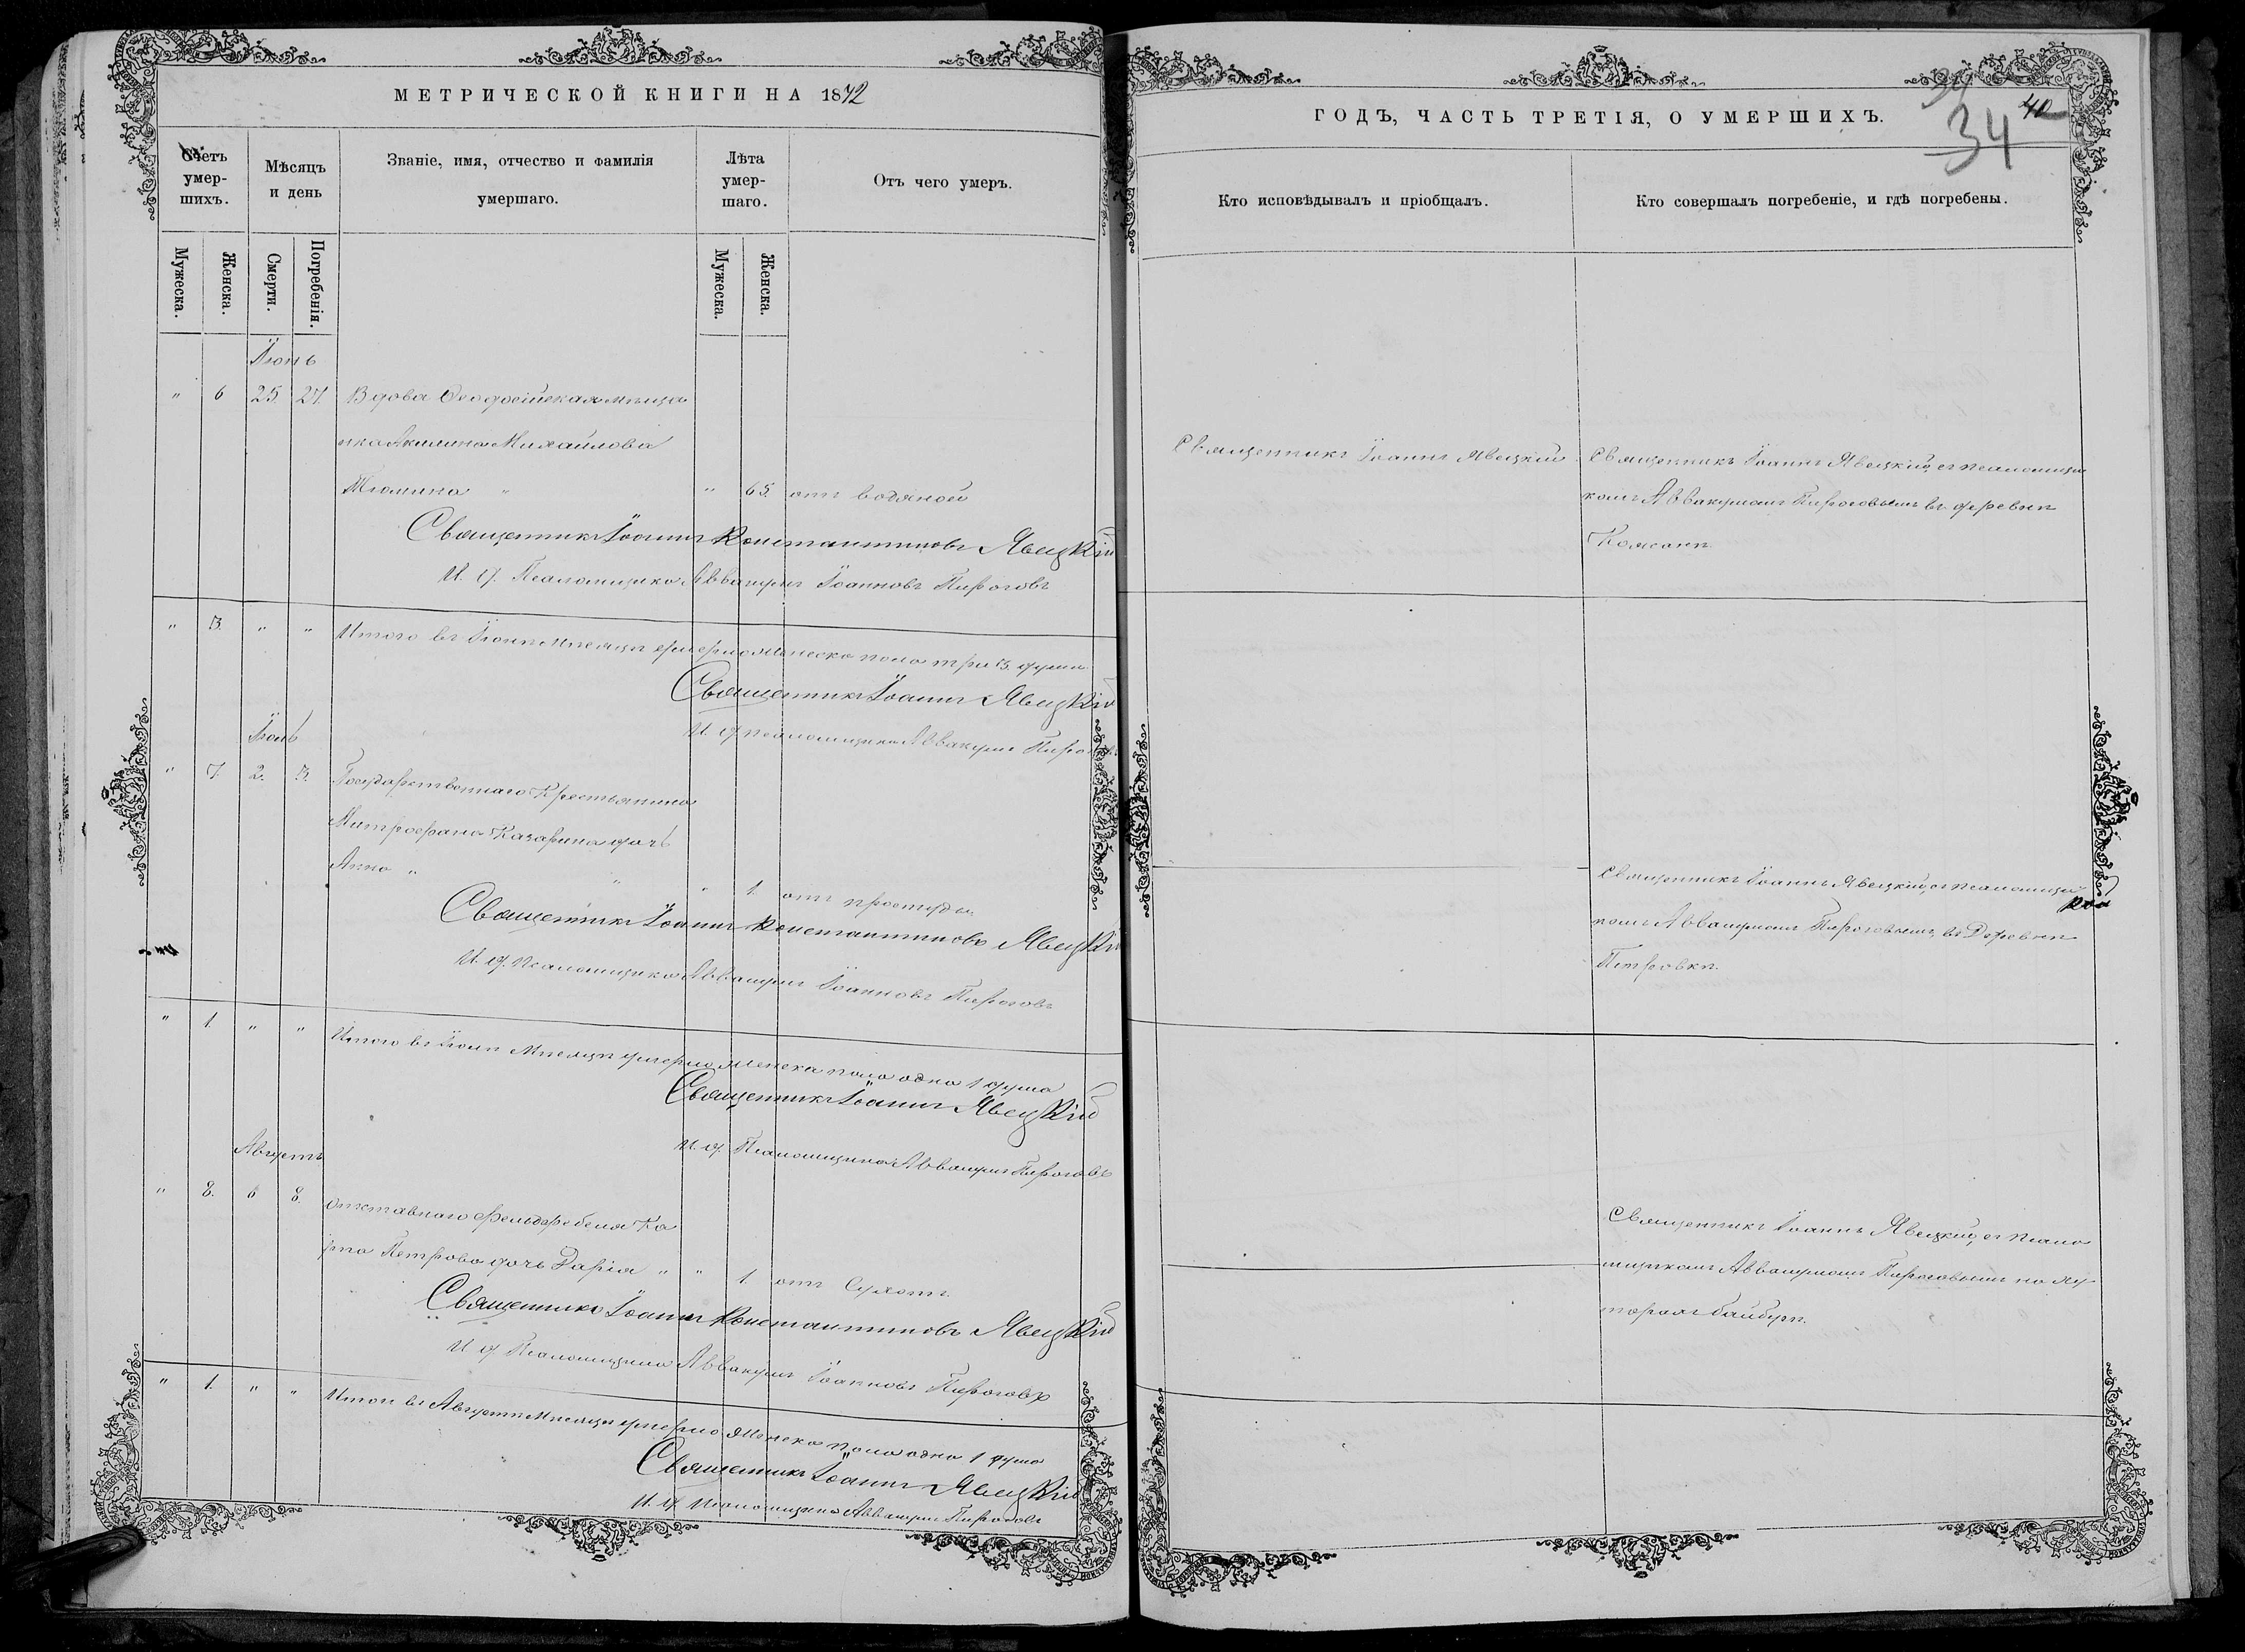 МЕТРИЧЕСКОЙ КНИГИ НА 1872
Счетъ умер-шихъ.
Мѣсяцъ и день
Званіе, имя, отчество и фамилія умершаго.
Лѣта умер-шаго.
Отъ чего умеръ.
Мужеска.
Женска.
Смерти.
Погребенія.
Мужеска.
Женска.
Іюнь
" 6 25. 27. Вдова Ѳеодосійская мѣща
нка Акилина Михайлова
" " 65. отъ водяной
Священникъ Іоаннъ Константиновъ Явецкій
И. д. Псаломщика Аввакумъ Іоанновъ Пироговъ
" 3. " " Итого въ Іюнѣ мѣсяцѣ умерло женска пола три 3. души
Священникъ Іоаннъ Явецкій
И д псаломщика Аввакумъ Пироговъ
Іюль
" 7. 2. 3. Государственнаго Крестьянина
Митрофана Казарина дочь
Анна " " " 1. отъ простуды.
Священникъ Іоаннъ Константиновъ Явецкій
И. д. Псаломщика Аввакумъ Іоанновъ Пироговъ
" 1. " " Итого въ Іюлѣ Мѣсяцѣ умерло женска пола одна 1 душа
Священникъ Іоаннъ Явецкій
И. д. Псаломщика Аввакумъ Пироговъ
Августъ
" 8. 6 8. отставнаго Фельдфебеля Ка
рпа Петрова дочь Дарія " " 1 отъ Сухотъ.
Священникъ Іоаннъ Константиновъ Явецкій
И д Псаломщика Аввакумъ Іоанновъ Пироговъ
" 1. " " Итого въ Августѣ Мѣсяцѣ умерло женска пола одна 1 душа
Священникъ Іоаннъ Явецкій
И. д. Псаломщика Аввакумъ Пироговъ
ГОДЪ, ЧАСТЬ ТРЕТІЯ, О УМЕРШИХЪ.
39
34
40
Кто исповѣдывалъ и пріобщалъ.
Кто совершалъ погребеніе, и гдѣ погребены.
Священникъ Іоаннъ Явецкій
Священникъ Іоаннъ Явецкій, съ псаломщи
комъ Аввакумомъ Пироговымъ въ деревнѣ
Священникъ Іоаннъ Явецкій, съ псаломщи
комъ Аввакумомъ Пироговымъ, въ Деревнѣ
Петровкѣ.
Священникъ Іоаннъ Явецкій, съ псало
мщикомъ Аввакумомъ Пироговымъ на ху
торахъ Байбуги.